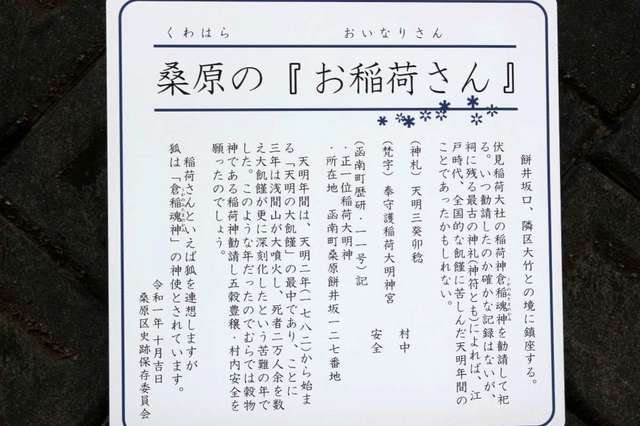 くわはら　おいなりさん
桑原の『お稲荷さん』
餅井坂口、隣区大竹との境に鎮座する。
伏見稲荷大社の稲荷神倉稲魂神を勧請して祀
る。いつ勧請したのか確かな記録はないが、
祠に残る最古の神札(神符とも)によれば、江
戸時代、全国的な飢饉に苦しんだ天明年間の
ことであったかもしれない。
(神札)　天明三癸卯稔　村中
(梵字)　奉守護稲荷大明神宮　安全
(函南町歴研・一一号)記
・正一位稲荷大明神
・所在地　函南町桑原餅井坂一二七番地
天明年間は、天明二年(一七八二)から始ま
る「天明の大飢饉」の最中であり、ことに
三年は浅間山が大噴火し、死者二万人余を数
え大飢饉が更に深刻化したという苦難の年で
した。このような年だったのでむらでは穀物
神である稲荷神勧請し五穀豊穣・村内安全を
願ったのでしょう。
稲荷さんといえば狐を連想しますが
狐は「倉稲魂神」の神使とされています。
令和一年十月吉日
桑原区史跡保存委員会